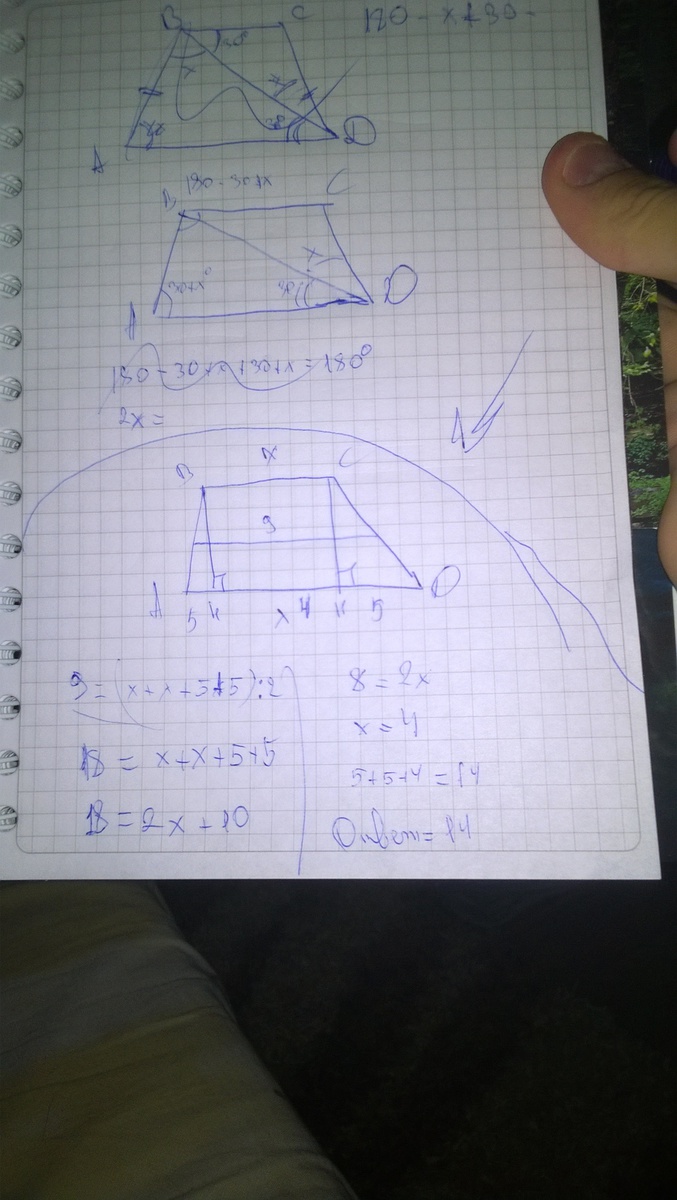 B C 180 - x + 30 -
30°
x
A D
B 180 - 30 + x C
30+x° x 30°
A D
180 - 30 + x + 30 + x = 180°
2x =
B x C
9
A 5 H x 4 H 5 D
9 = (x + x + 5 + 5) : 2
18 = x + x + 5 + 5
18 = 2x + 10
8 = 2x
x = 4
5 + 5 + 4 = 14
Ответ = 14